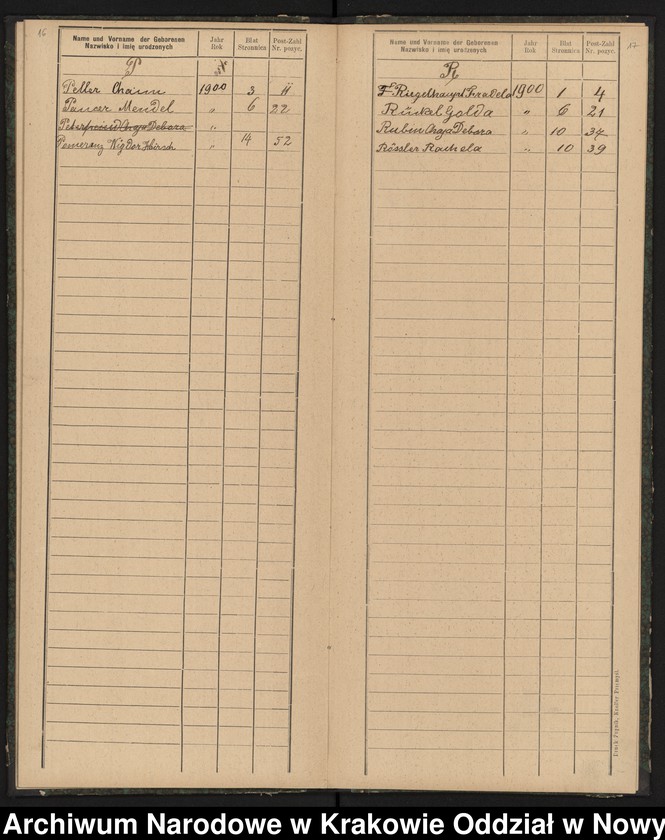 16
Name und Vorname der Geborenen
Nazwisko i imię urodzonych
Jahr
Rok
Blat
Stronnica
Post-Zahl
Nr. pozyc.
P
Peller Chaim 1900 3 11
Pancer Mendel " 6 22
Chaja Debora "
Pemeranz Wigdor Hirsch " 14 52
17
Name und Vorname der Geborenen
Nazwisko i imię urodzonych
Jahr
Rok
Blat
Stronnica
Post-Zahl
Nr. pozyc.
R
1900 1 4
Rinkel Golda " 6 21
Rubin Chaja Debora " 10 37
Rössler Rachela " 10 39
Druk Żupnik, Knoller Przemyśl.
Archiwum Narodowe w Krakowie Oddział w Nowy